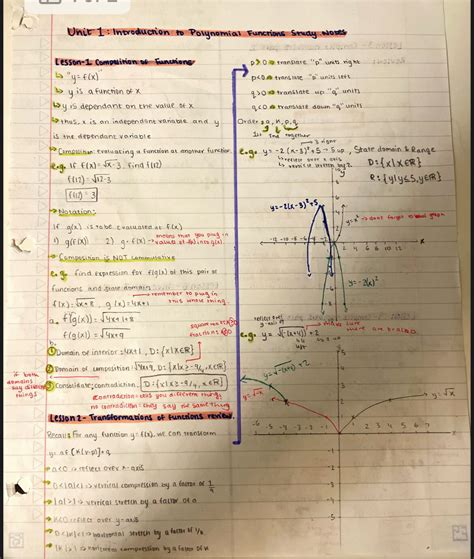 Unit 1: Introduction to Polynomial Functions Study Notes
Lesson-1 Composition of Functions
"y = f(x)"
y is a function of x
y is dependant on the value of x
thus, x is an independant variable and y
is the dependant variable
Composition: Evaluating a function at another function.
e.g. If f(x) = √x-3. Find f(12)
f(12) = √12-3
f(12) = 3
Notation:
If g(x) is to be evaluated at f(x).
1) g(f(x)) 2) g∘f(x) → means that you plug in
values of f(x) into g(x).
Composition is NOT commutative
e.g. find expression for f(g(x)) of this pair of
functions and state domain.
f(x) = √x+8, g(x) = 4x+1 → remember to plug in
this whole thing.
a. f(g(x)) = √4x+1+8
f(g(x)) = √4x+9
b.
① Domain of interior = 4x+1, D: {x|xER}
② Domain of composition: √4x+9, D: {x|x≥-9/4, xER}
③ Consolidate; contradiction. D: {x|x≥-9/4, xER}
if both
domains
say different
things
contradiction = tells you different things
no contradiction = they say the same thing
Lesson 2 - Transformations of functions review.
Recall: for any function y = f(x), we can transform
y = af[k(x-p)]+q
a<0 ⇒ reflect over x-axis
0<|a|<1 ⇒ vertical compression by a factor of
|a|>1 ⇒ vertical stretch by a factor of a
k<0 reflect over y-axis
0<|k|<1 ⇒ horizontal stretch by a factor of 1/k
|k|>1 ⇒ horizontal compression by a factor of k
p>0 ⇒ translate "p" units right
p<0 ⇒ translate "p" units left
q>0 ⇒ translate up "q" units
q<0 ⇒ translate down "q" units
Order: a, k, p, q
1st 2nd together
3 right
e.g. y = -2(x-3)²+5 → 5 up, State domain & Range
reflect over x axis
vertical stretch by 2
D: {x|xER}
R: {y|y≤5, yER}
y = -2(x-3)²+5
y = x² → dont forget to label graph
-12 -10 -8 -6 -4 2 4 6 8 10 12 x
y = -2(x)²
reflect over
y-axis
e.g. y = √-(x+4)+2
4
left
2
up
y = √-(x+4)+2
y = √-x
y = √x
-6 -5 -4 -3 -2 -1 0 1 2 3 4 5 6